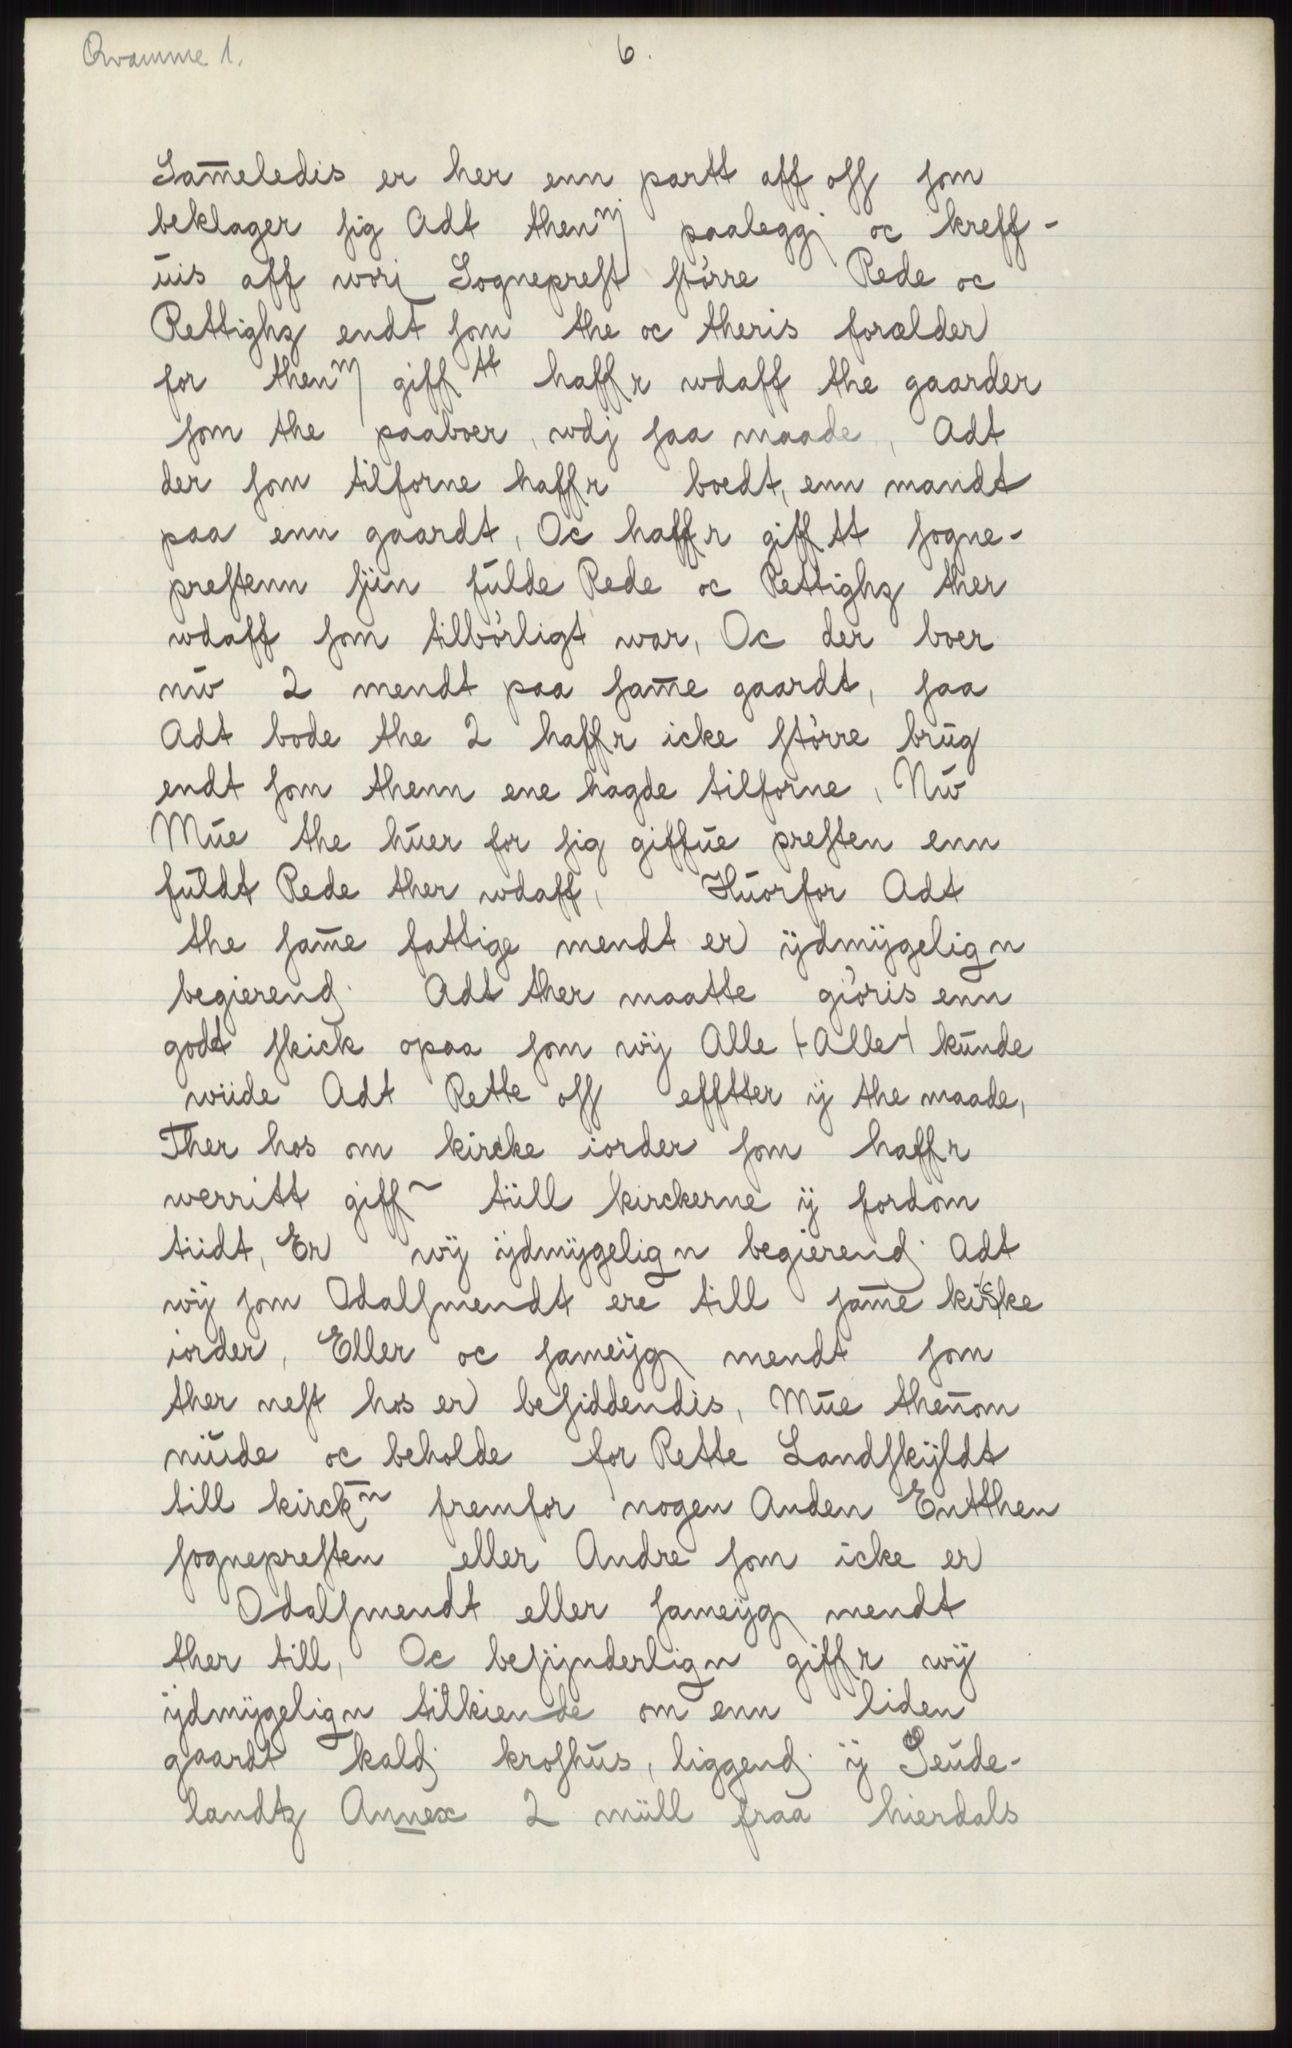 Qvamme 1.
6.
Sam̅eledis er her enn partt aff oss som
beklager sig Adt thenn̅ paalegg oc kreff-
uis aff worj Sogneprest større Rede oc
Rettighz endt som the oc theris forælder
for thenn̅ giff tt haffr wdaff the gaarder
som the paaboer, wdj saa maade, Adt
der som tilforne haffr boedt, enn mandt
paa enn gaardt, Oc haffr gifftt sogne-
prestenn siin fulde Rede oc Rettighz ther
wdaff som tilbørligt war, Oc der boer
nŭ 2 mendt paa sam̅e gaardt, saa
Adt bode the 2 haffr icke større brŭg
endt som thenn ene hagde tilforne, Nŭ
Mŭe the hŭer for sig giffŭe presten enn
fŭldt Rede ther wdaff, Hŭorfor Adt
the sam̅e fattige mendt er ÿdmÿgelign
begierend. Adt ther maatte giøris enn
godt skick opaa som wÿ Alle (Alle) kŭnde
wiide Adt Rette oss efftter ÿ the maade,
Ther hos om kircke iorder som haffr
werritt giff~ tiill kirckerne ÿ fordom
tiidt, Er wÿ ÿdmÿgelign begierend. Adt
wÿ som Odalsmendt ere till sam̅e kircke
iorder, Eller oc sameÿg mendt som
ther nest hos er besiddendis, Mŭe thenom
niŭde oc beholde for Rette Landskÿldt
till kirckn̅ fremfor nogen Anden Entthen
sognepresten eller Andre som icke er
Odalsmendt eller sameÿg mendt
ther till, Oc besÿnderlign giffr wÿ
ÿdmÿgelign tilkiende om enn liden
gaardt kald. kroshŭs, liggend. ÿ Seŭde-
landtz Annex 2 miill fraa hierdals